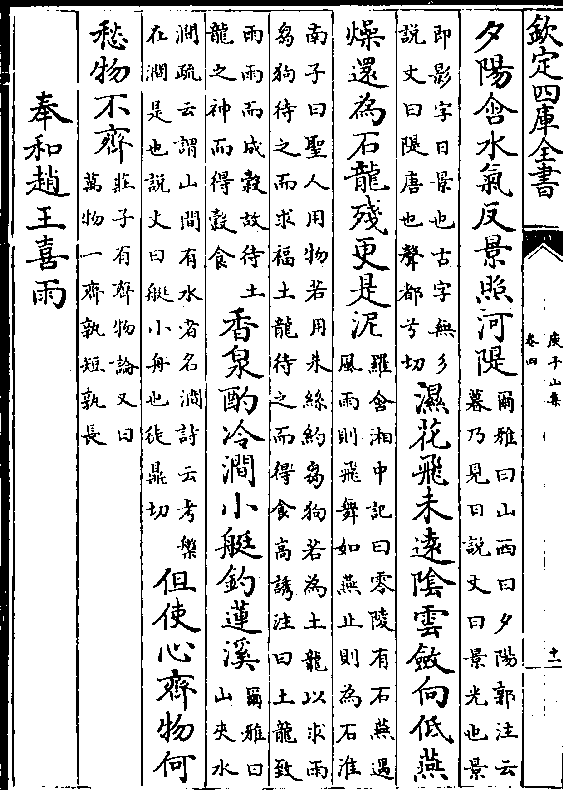 欽定四庫全書
庾子山集
卷四
十一
夕陽含水氣反景照河隄
爾雅曰山西曰夕陽郭注云
暮乃見日說文曰景光也景
即影字日景也古字無彡
說文曰隄唐也聲都兮切
濕花飛未遠陰雲斂向低燕
燥還為石龍殘更是泥
羅含湘中記曰零陵有石燕遇
風雨則飛舞如燕止則為石淮
南子曰聖人用物若用朱絲約芻狗若為土龍以求雨
芻狗待之而求福土龍待之而得食高誘注曰土龍致
雨雨而成穀故待土
龍之神而得穀食
香泉酌冷澗小艇釣蓮溪
爾雅曰
山夾水
澗疏云謂山間有水者名澗詩云考槃
在澗是也說文曰艇小舟也徒鼎切
但使心齊物何
愁物不齊
莊子有齊物論又曰
萬物一齊孰短孰長
奉和趙王喜雨